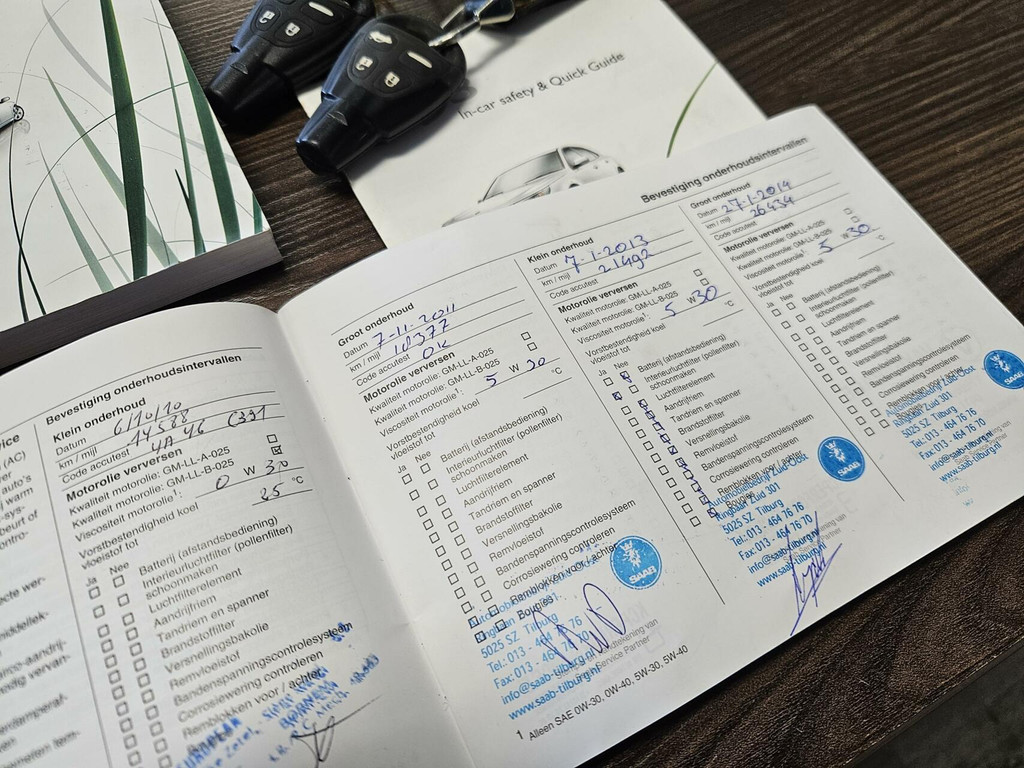 In-car safety & Quick Guide
Bevestiging onderhoudsintervallen
Klein onderhoud
Datum 6/10/10
km / mijl 14588
Code accutest 4A46 C331
Motorolie verversen
Kwaliteit motorolie: GM-LL-A-025
Kwaliteit motorolie: GM-LL-B-025
Viscositeit motorolie¹: 0 W 30
Vorstbestendigheid koel
vloeistof tot 25 °C
Ja Nee
Batterij (afstandsbediening)
Interieurluchtfilter (pollenfilter)
schoonmaken
Luchtfilterelement
Aandrijfriem
Tandriem en spanner
Brandstoffilter
Versnellingsbakolie
Remvloeistof
Bandenspanningscontrolesysteem
Corrosiewering controleren
Remblokken voor / achter
Groot onderhoud
Datum 7-11-2011
km / mijl 18377
Code accutest OK
Motorolie verversen
Kwaliteit motorolie: GM-LL-A-025
Kwaliteit motorolie: GM-LL-B-025
Viscositeit motorolie¹: 5 W 30
Vorstbestendigheid koel
vloeistof tot °C
Ja Nee
Batterij (afstandsbediening)
Interieurluchtfilter (pollenfilter)
schoonmaken
Luchtfilterelement
Aandrijfriem
Tandriem en spanner
Brandstoffilter
Versnellingsbakolie
Remvloeistof
Bandenspanningscontrolesysteem
Corrosiewering controleren
Remblokken voor / achter
Bougies
SAAB
Ringbaan Zuid 301
5025 SZ Tilburg
Tel: 013 - 464 76 76
Fax: 013 - 464 76 70
info@saab-tilburg.nl
www.saab-tilburg.nl
Service Partner
1 Alleen SAE 0W-30, 0W-40, 5W-30, 5W-40
Klein onderhoud
Datum 7-1-2013
km / mijl 21492
Code accutest
Motorolie verversen
Kwaliteit motorolie: GM-LL-A-025
Kwaliteit motorolie: GM-LL-B-025
Viscositeit motorolie¹: 5 W 30
Vorstbestendigheid koel
vloeistof tot °C
Ja Nee
Batterij (afstandsbediening)
Interieurluchtfilter (pollenfilter)
schoonmaken
Luchtfilterelement
Aandrijfriem
Tandriem en spanner
Brandstoffilter
Versnellingsbakolie
Remvloeistof
Bandenspanningscontrolesysteem
Corrosiewering controleren
Remblokken voor / achter
SAAB
Ringbaan Zuid 301
5025 SZ Tilburg
Tel: 013 - 464 76 76
Fax: 013 - 464 76 70
info@saab-tilburg.nl
www.saab-tilburg.nl
Bevestiging onderhoudsintervallen
Groot onderhoud
Datum 27-1-2014
km / mijl 26434
Code accutest
Motorolie verversen
Kwaliteit motorolie: GM-LL-A-025
Kwaliteit motorolie: GM-LL-B-025
Viscositeit motorolie¹: 5 W 30
Vorstbestendigheid koel
vloeistof tot °C
Ja Nee
Batterij (afstandsbediening)
Interieurluchtfilter (pollenfilter)
schoonmaken
Luchtfilterelement
Aandrijfriem
Tandriem en spanner
Brandstoffilter
Versnellingsbakolie
Remvloeistof
Bandenspanningscontrolesysteem
Corrosiewering controleren
Remblokken voor / achter
SAAB
Ringbaan Zuid 301
5025 SZ Tilburg
Tel: 013 - 464 76 76
Fax: 013 - 464 76 70
info@saab-tilburg.nl
www.saab-tilburg.nl